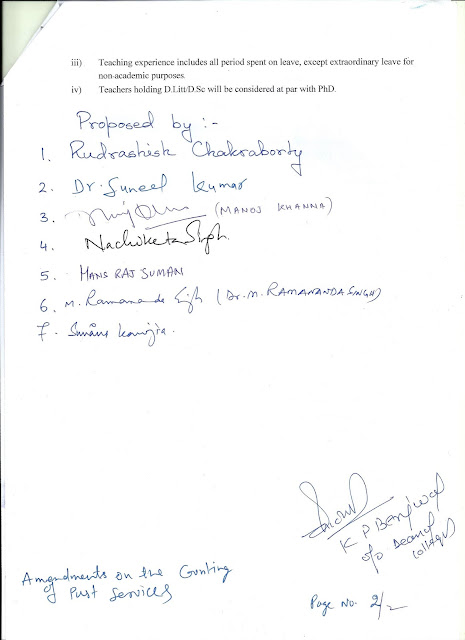 iii) Teaching experience includes all period spent on leave, except extraordinary leave for
non-academic purposes.
iv) Teachers holding D.Litt/D.Sc will be considered at par with PhD.
Proposed by :-
1. Rudrashish Chakraborty
2. Dr. Suneel Kumar
3. (MANOJ KHANNA)
4. Nachiketa Singh
5. HANS RAJ SUMAN
6. M. Ramananda Singh (Dr. M. RAMANANDA SINGH)
7.
K P Beniwal
o/o Dean of
Colleges
Amendments on the Counting
of Past Services
Page No. 2/2